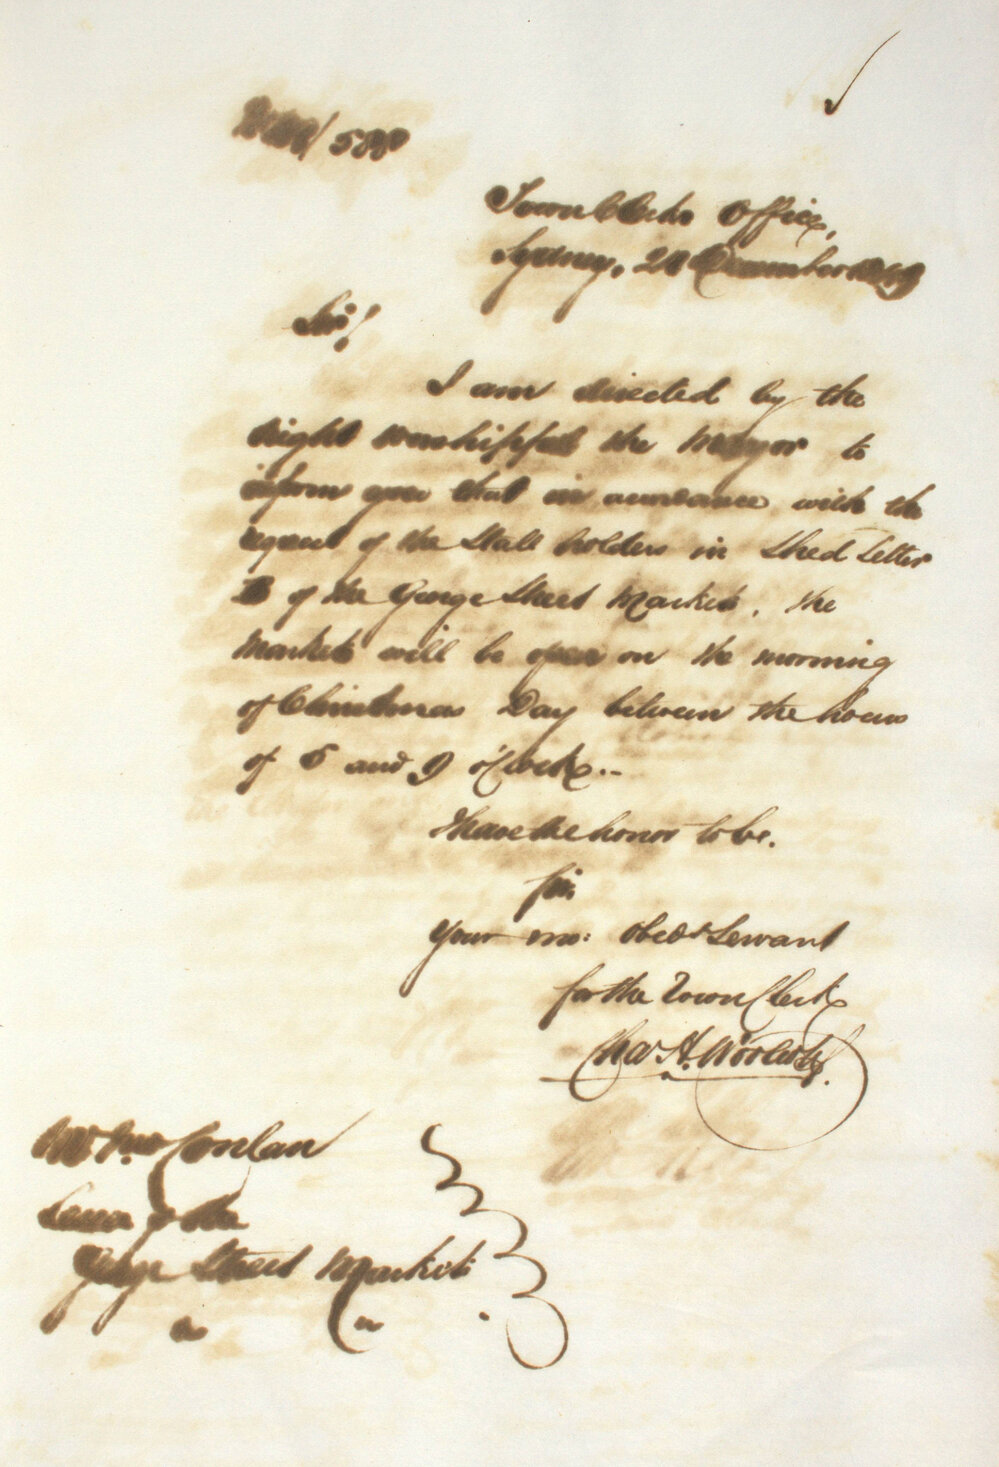 Town Clerks Office,
Sydney, December 1849
Sir!
I am directed by the
Right Worshipful the Mayor to
inform you that in accordance with the
request of the Stall holders in Shed Letter
B of the George Street Markets, the
Markets will be open on the morning
of Christmas Day between the hours
of 6 and 9 o'Clock..
I have the honor to be,
Sir,
Your mo: obedt Servant
for the Town Clerk
Chas H. Woolcott
Conlan
Lessee of the
George Street Markets